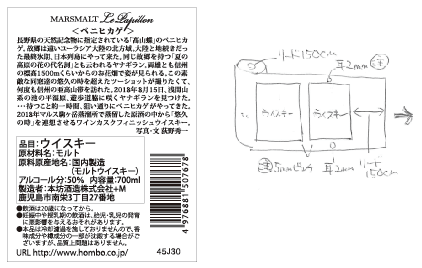 MARSMALT Le Papillon
＜ベニヒカゲ＞
長野県の天然記念物に指定されている「高山蝶」のベニヒカ
ゲ。故郷は遠いユーラシア大陸の北方域。大陸と地続きだっ
た最終氷期、日本列島にやって来た。同じ故郷を持つ「夏の
高原の花の代名詞」とも云われるヤナギラン。両雄とも信州
の標高1500mくらいからのお花畑で姿が見られる。この素
敵な同窓達の悠久の時を超えたツーショットが撮りたくて、
何度も信州の亜高山帯を訪れた。2018年8月15日、浅間山
系の池の平湿原、遊歩道脇に咲くヤナギランを見つけた。
…待つこと約一時間、狙い通りにベニヒカゲがやってきた。
2018年マルス駒ヶ岳蒸溜所で蒸留した原酒の中から「悠久
の時」を連想させるワインカスクフィニッシュウイスキー。
写真・文 荻野秀一
品目：ウイスキー
原材料名：モルト
原料原産地名：国内製造
（モルトウイスキー）
アルコール分：50%　内容量：700ml
製造者：本坊酒造株式会社+M
鹿児島市南栄3丁目27番地
●飲酒は20歳になってから。
●妊娠中や授乳期の飲酒は、胎児・乳児の発育
に悪影響を与えるおそれがあります。
●本品は冷却濾過を施しておりませんので、香
味成分や樽成分の一部が沈殿する場合がご
ざいますが、品質上問題はありません。
URL http://www.hombo.co.jp/　45J30
4 976881 507678
リード150cm
耳2mm
ウイスキー
ウイスキー
耳2mm
リード
150cm